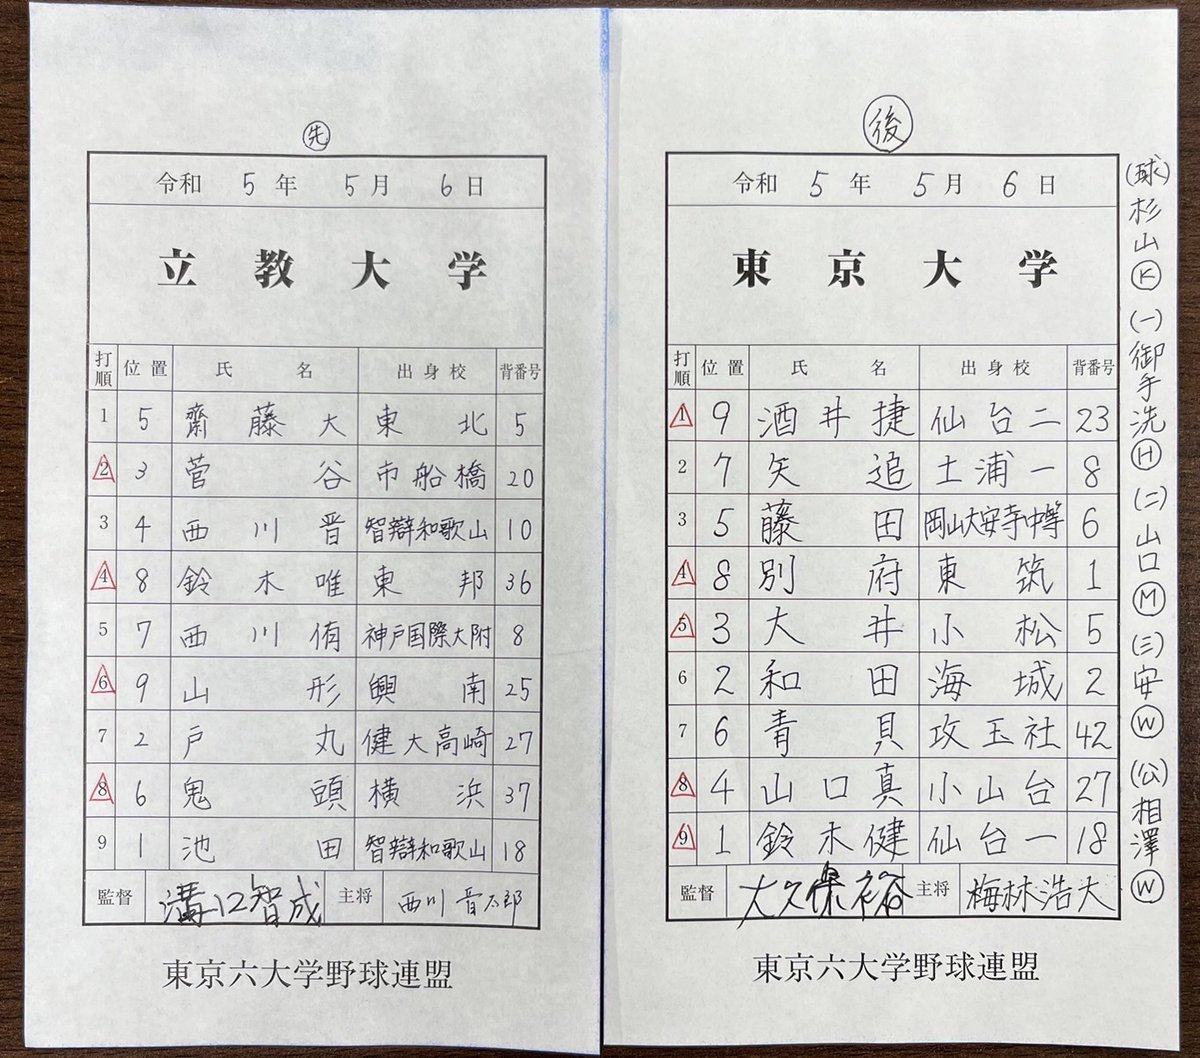 先
令和 5年 5月 6日
立教大学
打順 位置 氏名 出身校 背番号
1 5 齋藤大 東北 5
2 3 菅谷 市船橋 20
3 4 西川晋 智辯和歌山 10
4 8 鈴木唯 東邦 36
5 7 西川侑 神戸国際大附 8
6 9 山形 興南 25
7 2 戸丸 健大高崎 27
8 6 鬼頭 横浜 37
9 1 池田 智辯和歌山 18
監督 溝口智成 主将 西川晋太郎
東京六大学野球連盟
後
令和 5年 5月 6日
東京大学
打順 位置 氏名 出身校 背番号
1 9 酒井捷 仙台二 23
2 7 矢追 土浦一 8
3 5 藤田 岡山大安寺中等 6
4 8 別府 東筑 1
5 3 大井 小松 5
6 2 和田 海城 2
7 6 青貝 攻玉社 42
8 4 山口真 小山台 27
9 1 鈴木健 仙台一 18
監督 大久保裕 主将 梅林浩大
東京六大学野球連盟
(球)杉山Ⓚ (一)御手洗Ⓗ (二)山口Ⓜ (三)安Ⓦ (公)相澤Ⓦ